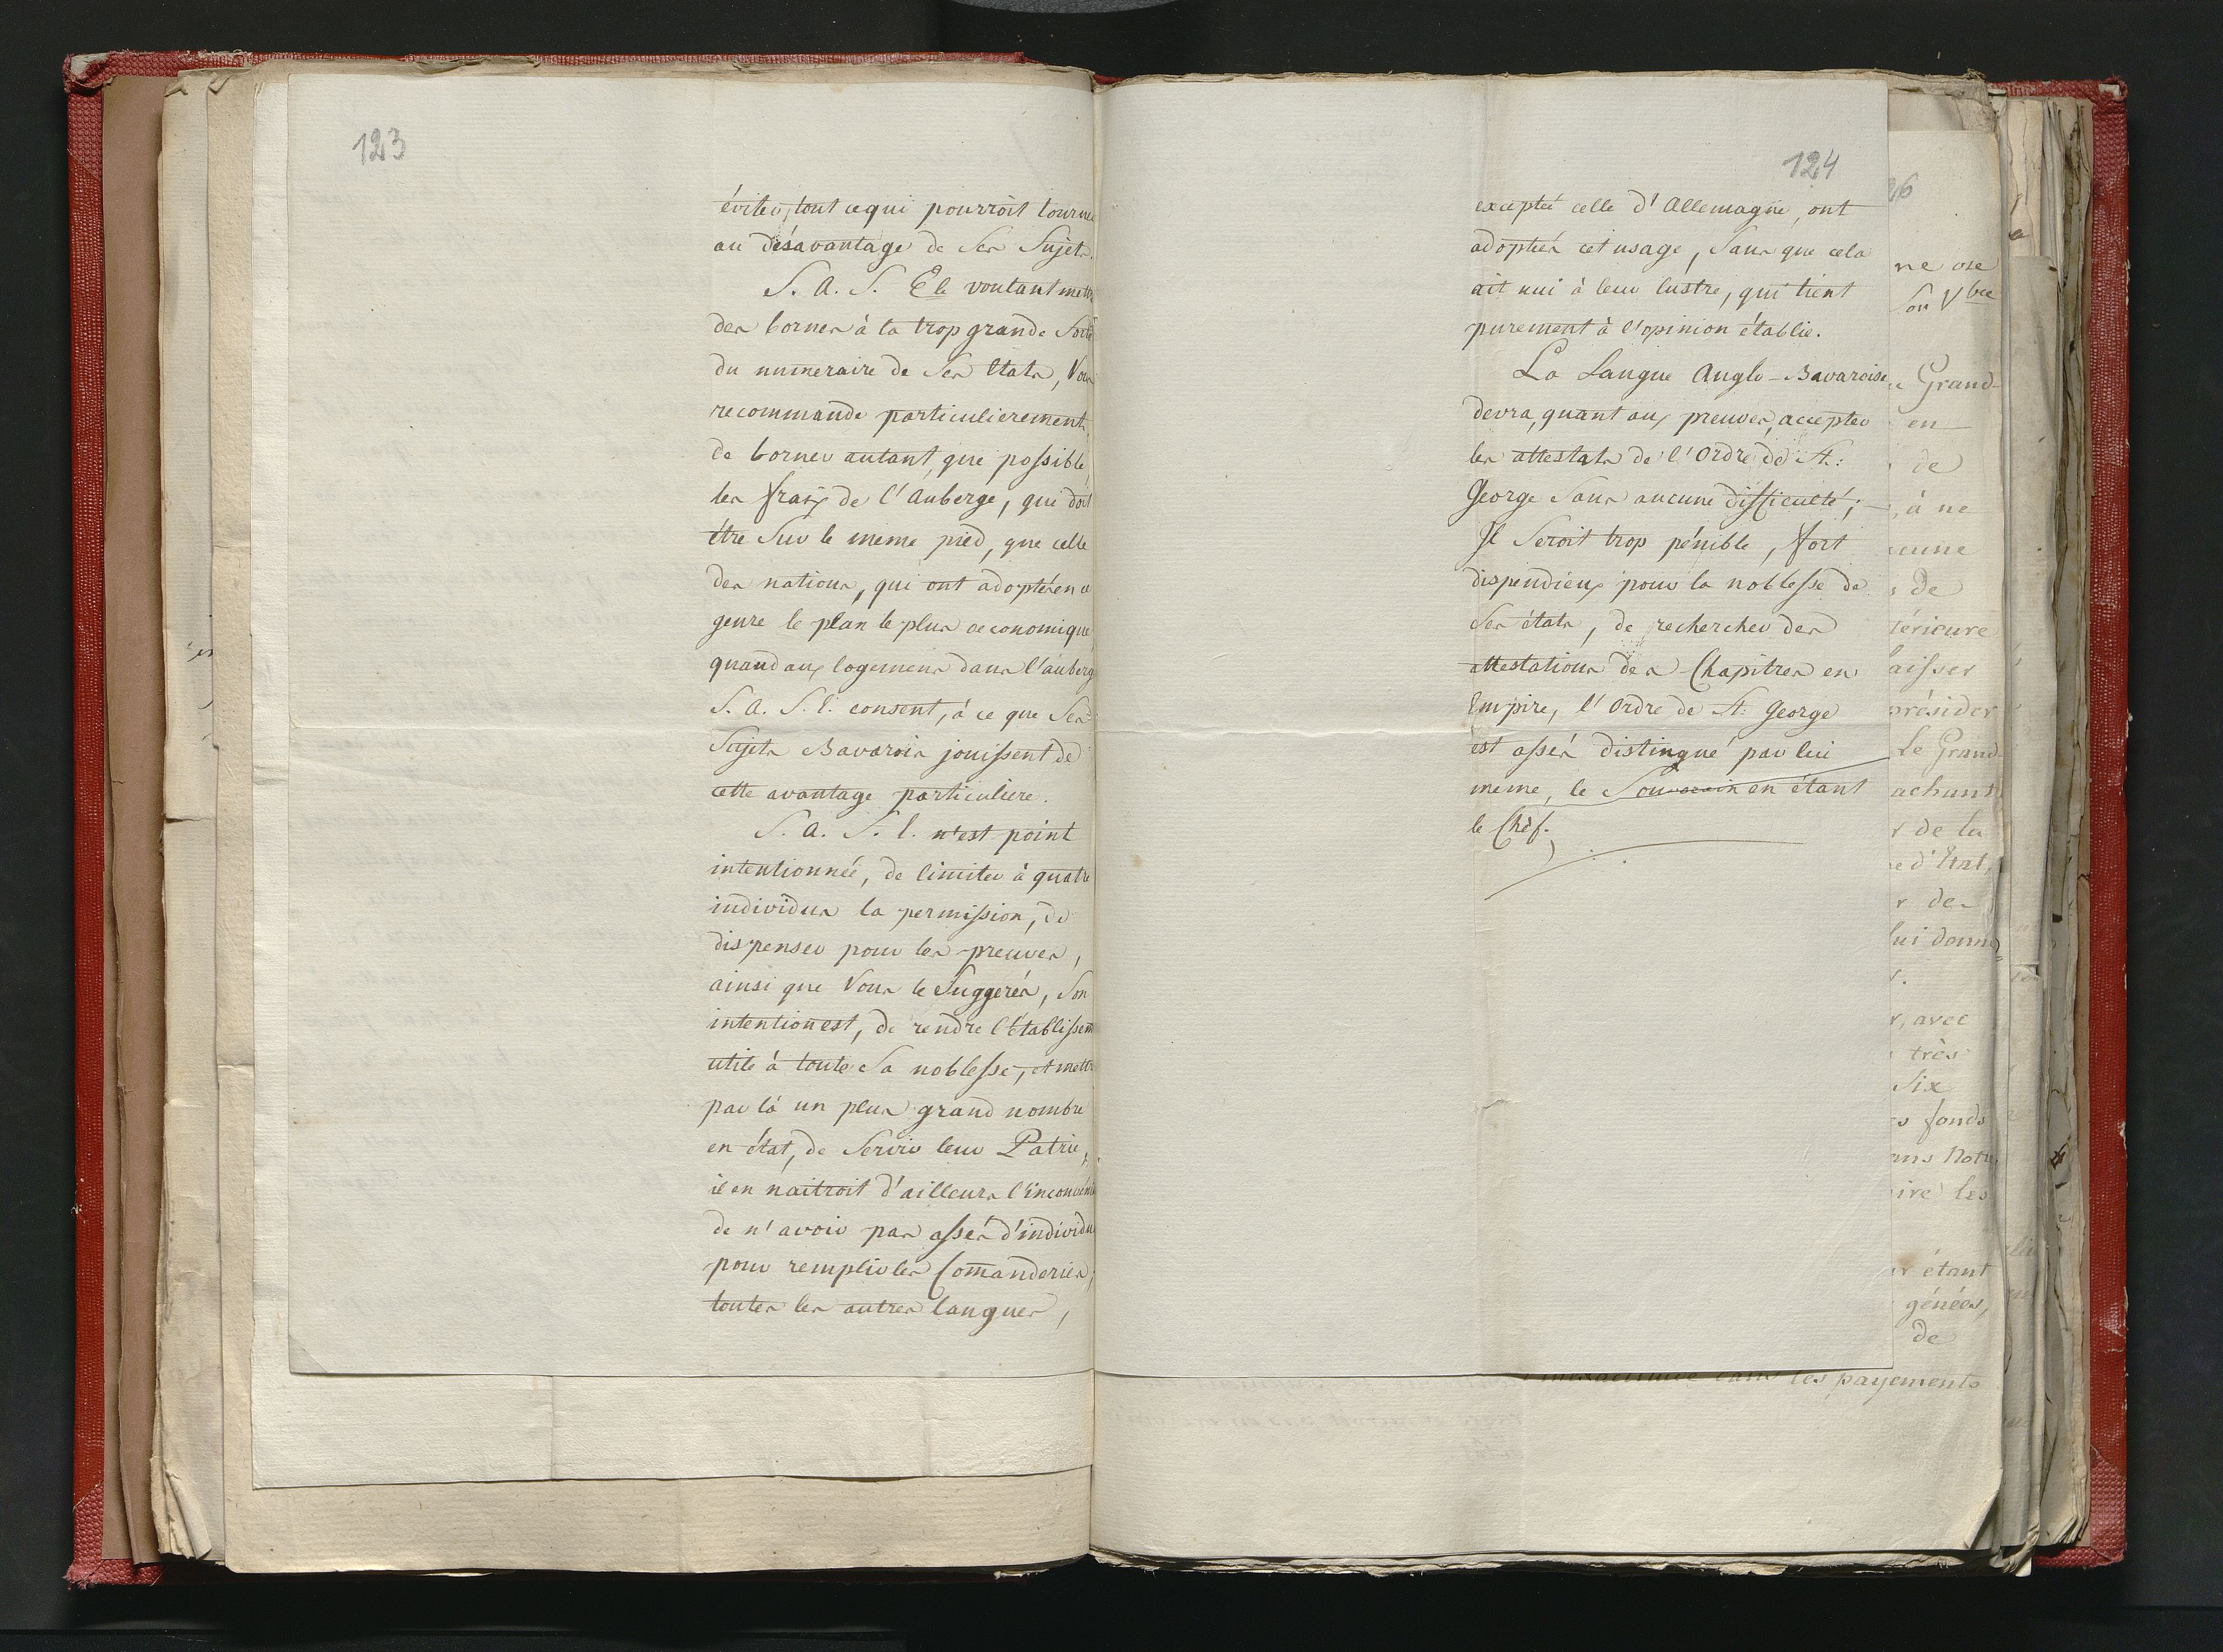 123
éviter, tout ce qui pourroit tourner
au désavantage de Ses Sujets.
S. A. S. Ele voulant mettre
des bornes à la trop grande Sortie
du numeraire de Ses Etats, Vous
recommande particulierement,
de borner autant, que possible,
les fraix de l'Auberge, qui doit
étre Sur le meme pied, que celle
des nations, qui ont adoptés en ce
genre le plan le plus oeconomique,
quand aux logemens dans l'auberge
S. A. S. E. consent, à ce que Ses
Sujets Bavarois jouissent de
cette avantage particuliere.
S. A. S. E. n'est point
intentionnée, de limiter à quatre
individus la permission, de
dispenser pour les preuves,
ainsi que Vous le Suggerés, Son
intention est, de rendre l'établissem
utile à toute Sa noblesse, et mettre
par là un plus grand nombre
en état, de Servir leur Patrie,
il en naitroit d'ailleurs l'inconvénie
de n'avoir pas assés d'individus
pour remplir les Comanderies;
toutes les autres langues,
124
exceptée celle d'Allemagne, ont
adoptées cet usage, Sans que cela
ait nui à leur lustre, qui tient
purement à l'opinion établie.
La Langue Anglo-Bavaroise
devra, quant aux preuves, accepter
les attestats de l'Ordre de St:
George Sans aucune difficulté; –
Il Seroit trop pénible, fort
dispendieux pour la noblesse de
Ses états, de rechercher des
attestations des Chapitres en
Empire, l'Ordre de St: George
est assés distingué par lui
meme, le Souverain en étant
le Chéf.
26
ne ose
Son Vbre
Grand-
en
de
, à ne
cune
de
térieure
aisser
présider
Le Grand
achant
de la
d'Etat,
des
lui donne
, avec
très
Six
fonds
Notre
ire les
étant
génées,
de
dans les payements